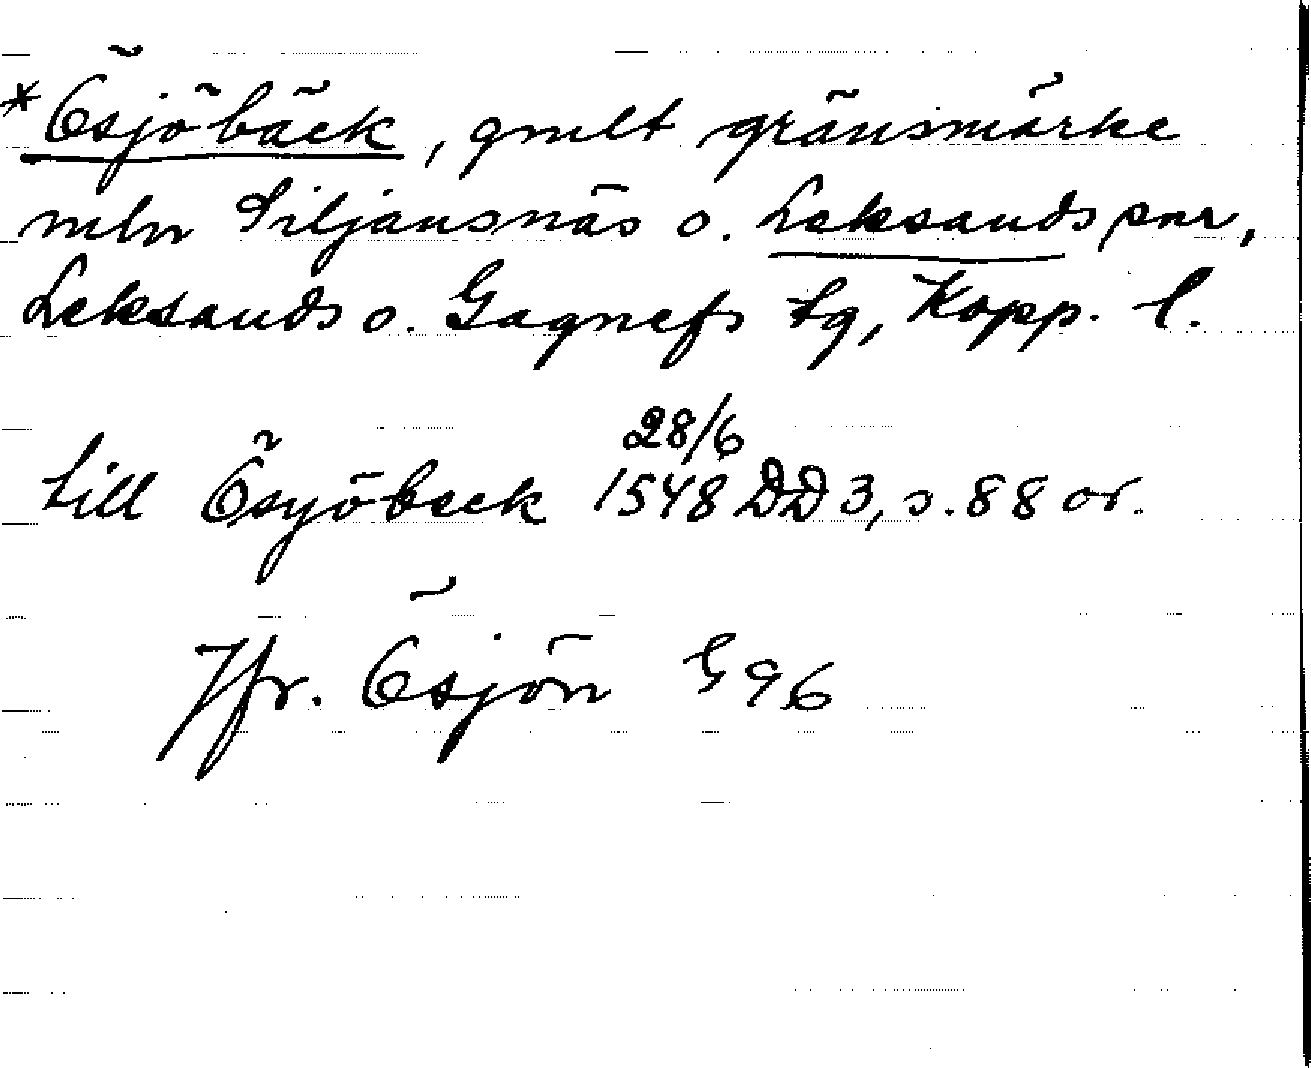 *Ösjöbäck, gmlt gränsmärke
mln Siljansnäs o. Leksands snr,
Leksands o. Gagnefs tg, Kopp. l.
28/6
till Ösyöbeck 1548 DD 3, s. 88 or.
Jfr. Ösjön G 96